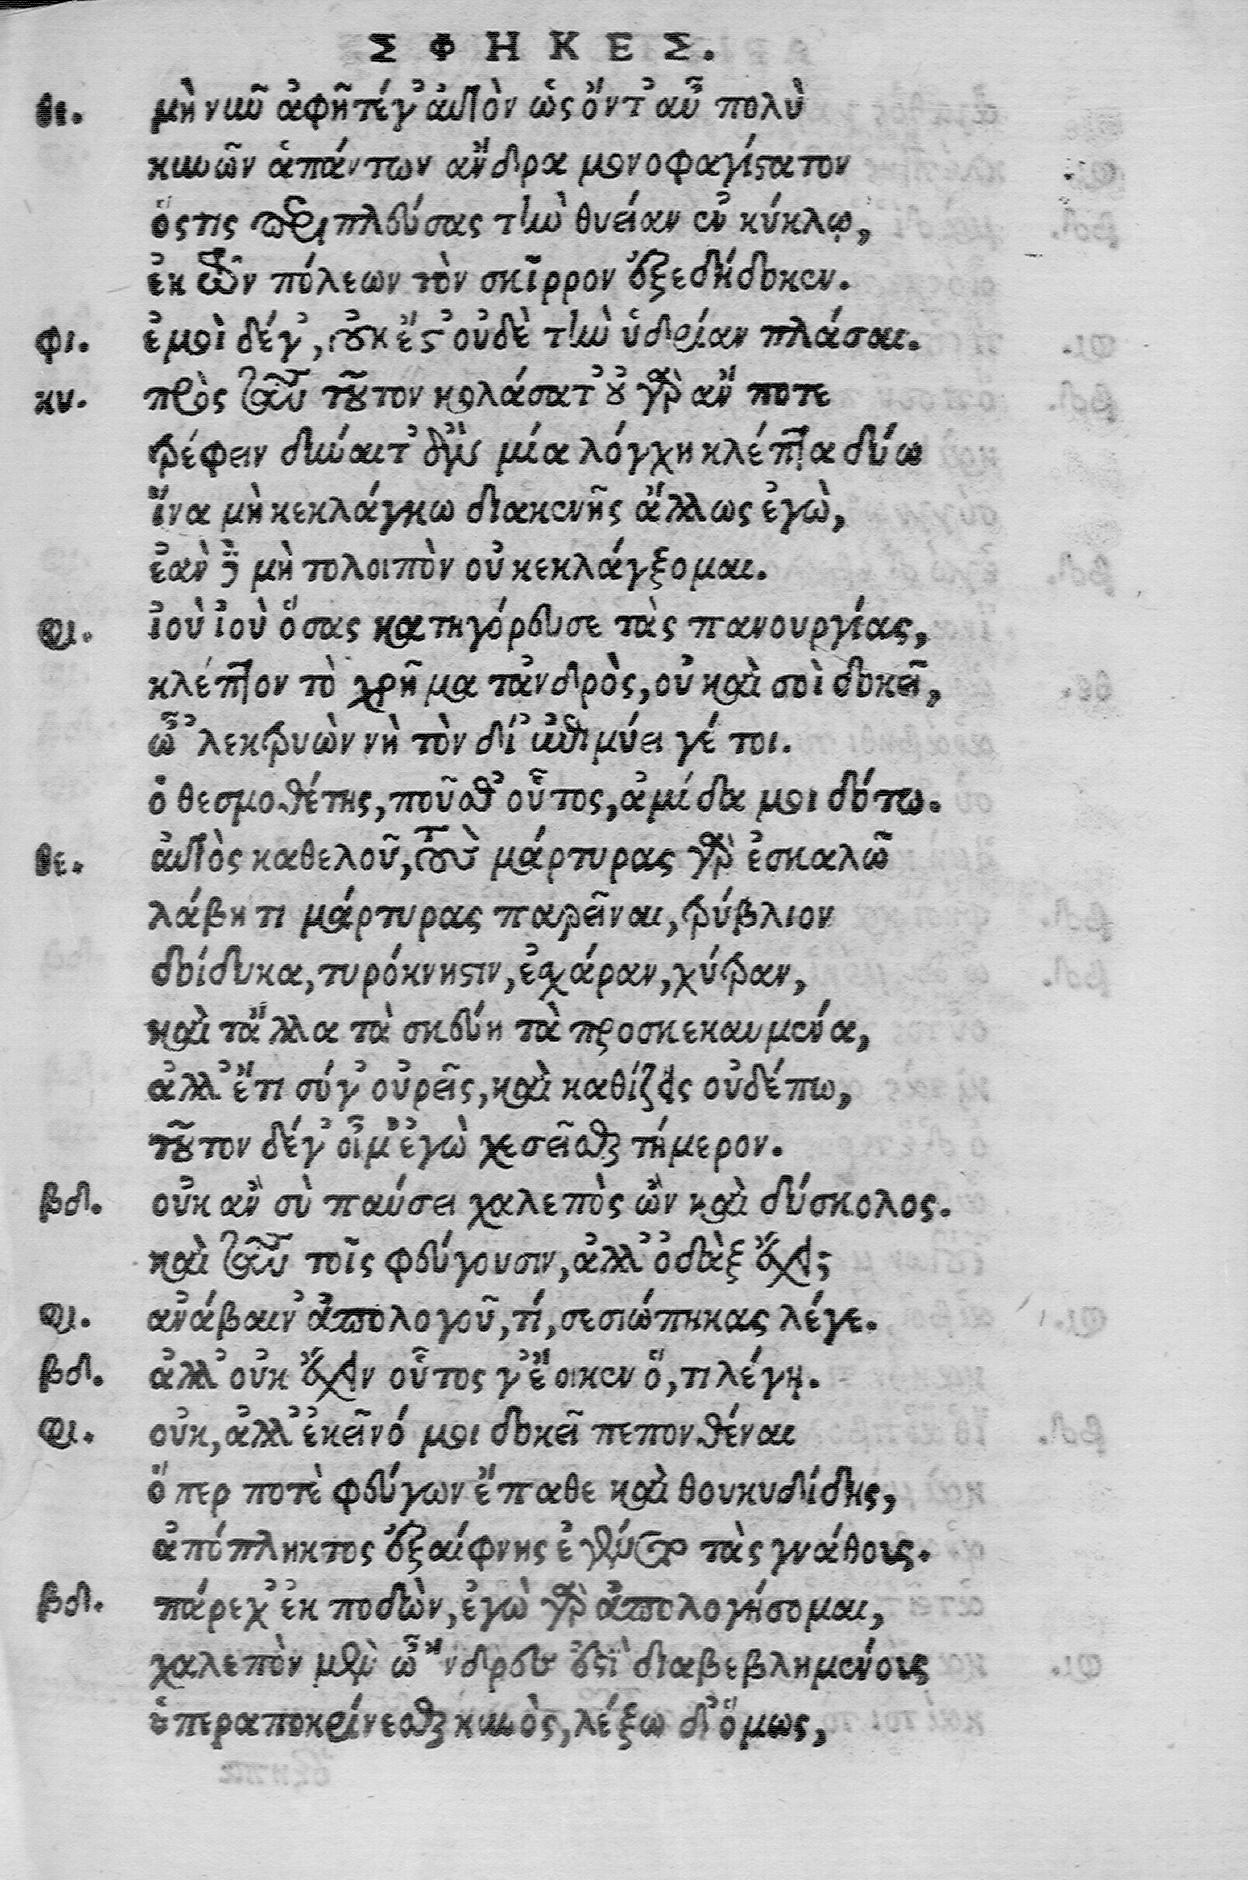 ΣΦΗΚΕΣ.
θε. μὴ νυῦ ἀφῆτέγ' ἀυτὸν ὡς ὄντ' αὖ πολὺ
κυνῶν ἁπάντων ἄνδρα μονοφαγίστατον
ὅςτις περιπλεύσας τὴν θυείαν ἐν κύκλῳ,
ἐκ τῶν πόλεων τὸν σκῖρρον ἐξεδήδοκεν.
φι. ἐμοὶ δέγ', οὐκ ἔστ' οὐδὲ τὴν ὑδρίαν πλάσαι.
κυ. πρὸς ταῦτα τοῦτον κολάσατ' οὐ γὰρ ἄν ποτε
τρέφειν δύναιτ' ἂν μία λόχμη κλέπτα δύω
ἵνα μὴ κεκλάγγω διακενῆς ἄλλως ἐγὼ,
ἐὰν δὲ μὴ τολοιπὸν οὐ κεκλάγξομαι.
φι. ἰοὺ ἰοὺ ὅσας κατηγόρευσε τὰς πανουργίας,
κλέπτον τὸ χρῆμα τἀνδρὸς, οὐ καὶ σοὶ δοκεῖ,
ὦ 'λεκτρυὼν νὴ τὸν δί' ἐπιμύει γέ τοι.
ὁ θεσμοθέτης, ποῦσθ' οὗτος, ἀμίδα μοι δότω.
θε. ἀυτὸς καθελοῦ, τοὺς μάρτυρας γὰρ ἐσκαλῶ
λάβητι μάρτυρας παρεῖναι, τρύβλιον
δοίδυκα, τυρόκνηστιν, ἐσχάραν, χύτραν,
καὶ τἄλλα τὰ σκεύη τὰ προσκεκαυμένα,
ἀλλ' ἔτι σύγ' οὐρεῖς, καὶ καθίζεις οὐδέπω,
τοῦτον δέγ' οἶμ' ἐγὼ χεσεῖσθαι τήμερον.
βδ. οὐκ ἂν σὺ παύσει χαλεπὸς ὢν καὶ δύσκολος.
καὶ ταῦτα τοῖς φεύγουσιν, ἀλλ' ὀδὰξ ἔχει;
φι. ἀνάβαιν' ἀπολογοῦ, τί, σεσιώπηκας λέγε.
βδ. ἀλλ' οὐκ ἔχειν οὗτος γ' ἔοικεν ὅ, τι λέγῃ.
φι. οὐκ, ἀλλ' ἐκεῖνό μοι δοκεῖ πεπονθέναι
ὅπερ ποτὲ φεύγων ἔπαθε καὶ θουκυδίδης,
ἀπόπληκτος ἐξαίφνης ἐγένετο τὰς γνάθους.
βδ. πάρεχ' ἐκ ποδὼν, ἐγὼ γὰρ ἀπολογήσομαι,
χαλεπὸν μὲν ὦ 'νδρες ἐστὶ διαβεβλημένοις
ὑπεραποκρίνεσθαι κυνὸς, λέξω δ' ὅμως,